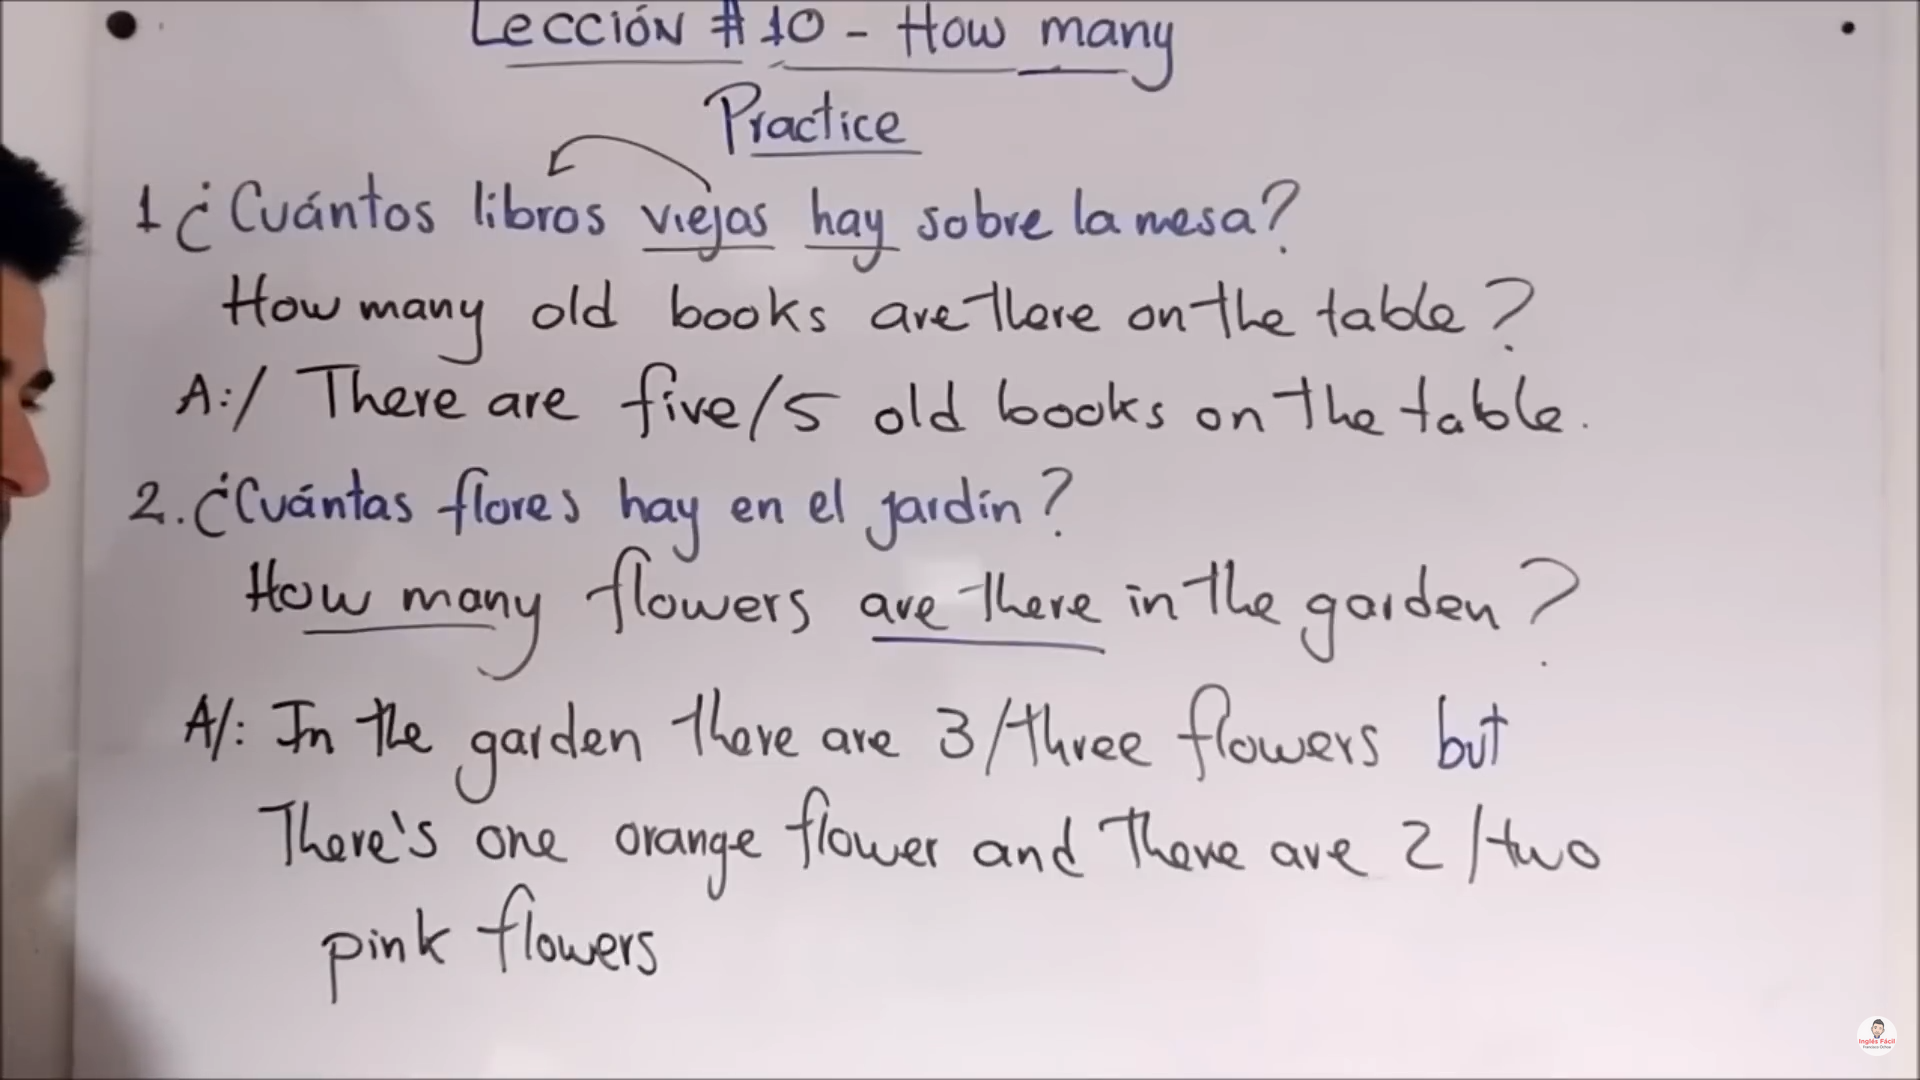 Lección #10 - How many
Practice
1 ¿Cuántos libros viejos hay sobre la mesa?
How many old books are there on the table?
A:/ There are five/5 old books on the table.
2. ¿Cuántas flores hay en el jardín?
How many flowers are there in the garden?
A/: In the garden there are 3/three flowers but
There's one orange flower and there are 2/two
pink flowers
Inglés Fácil